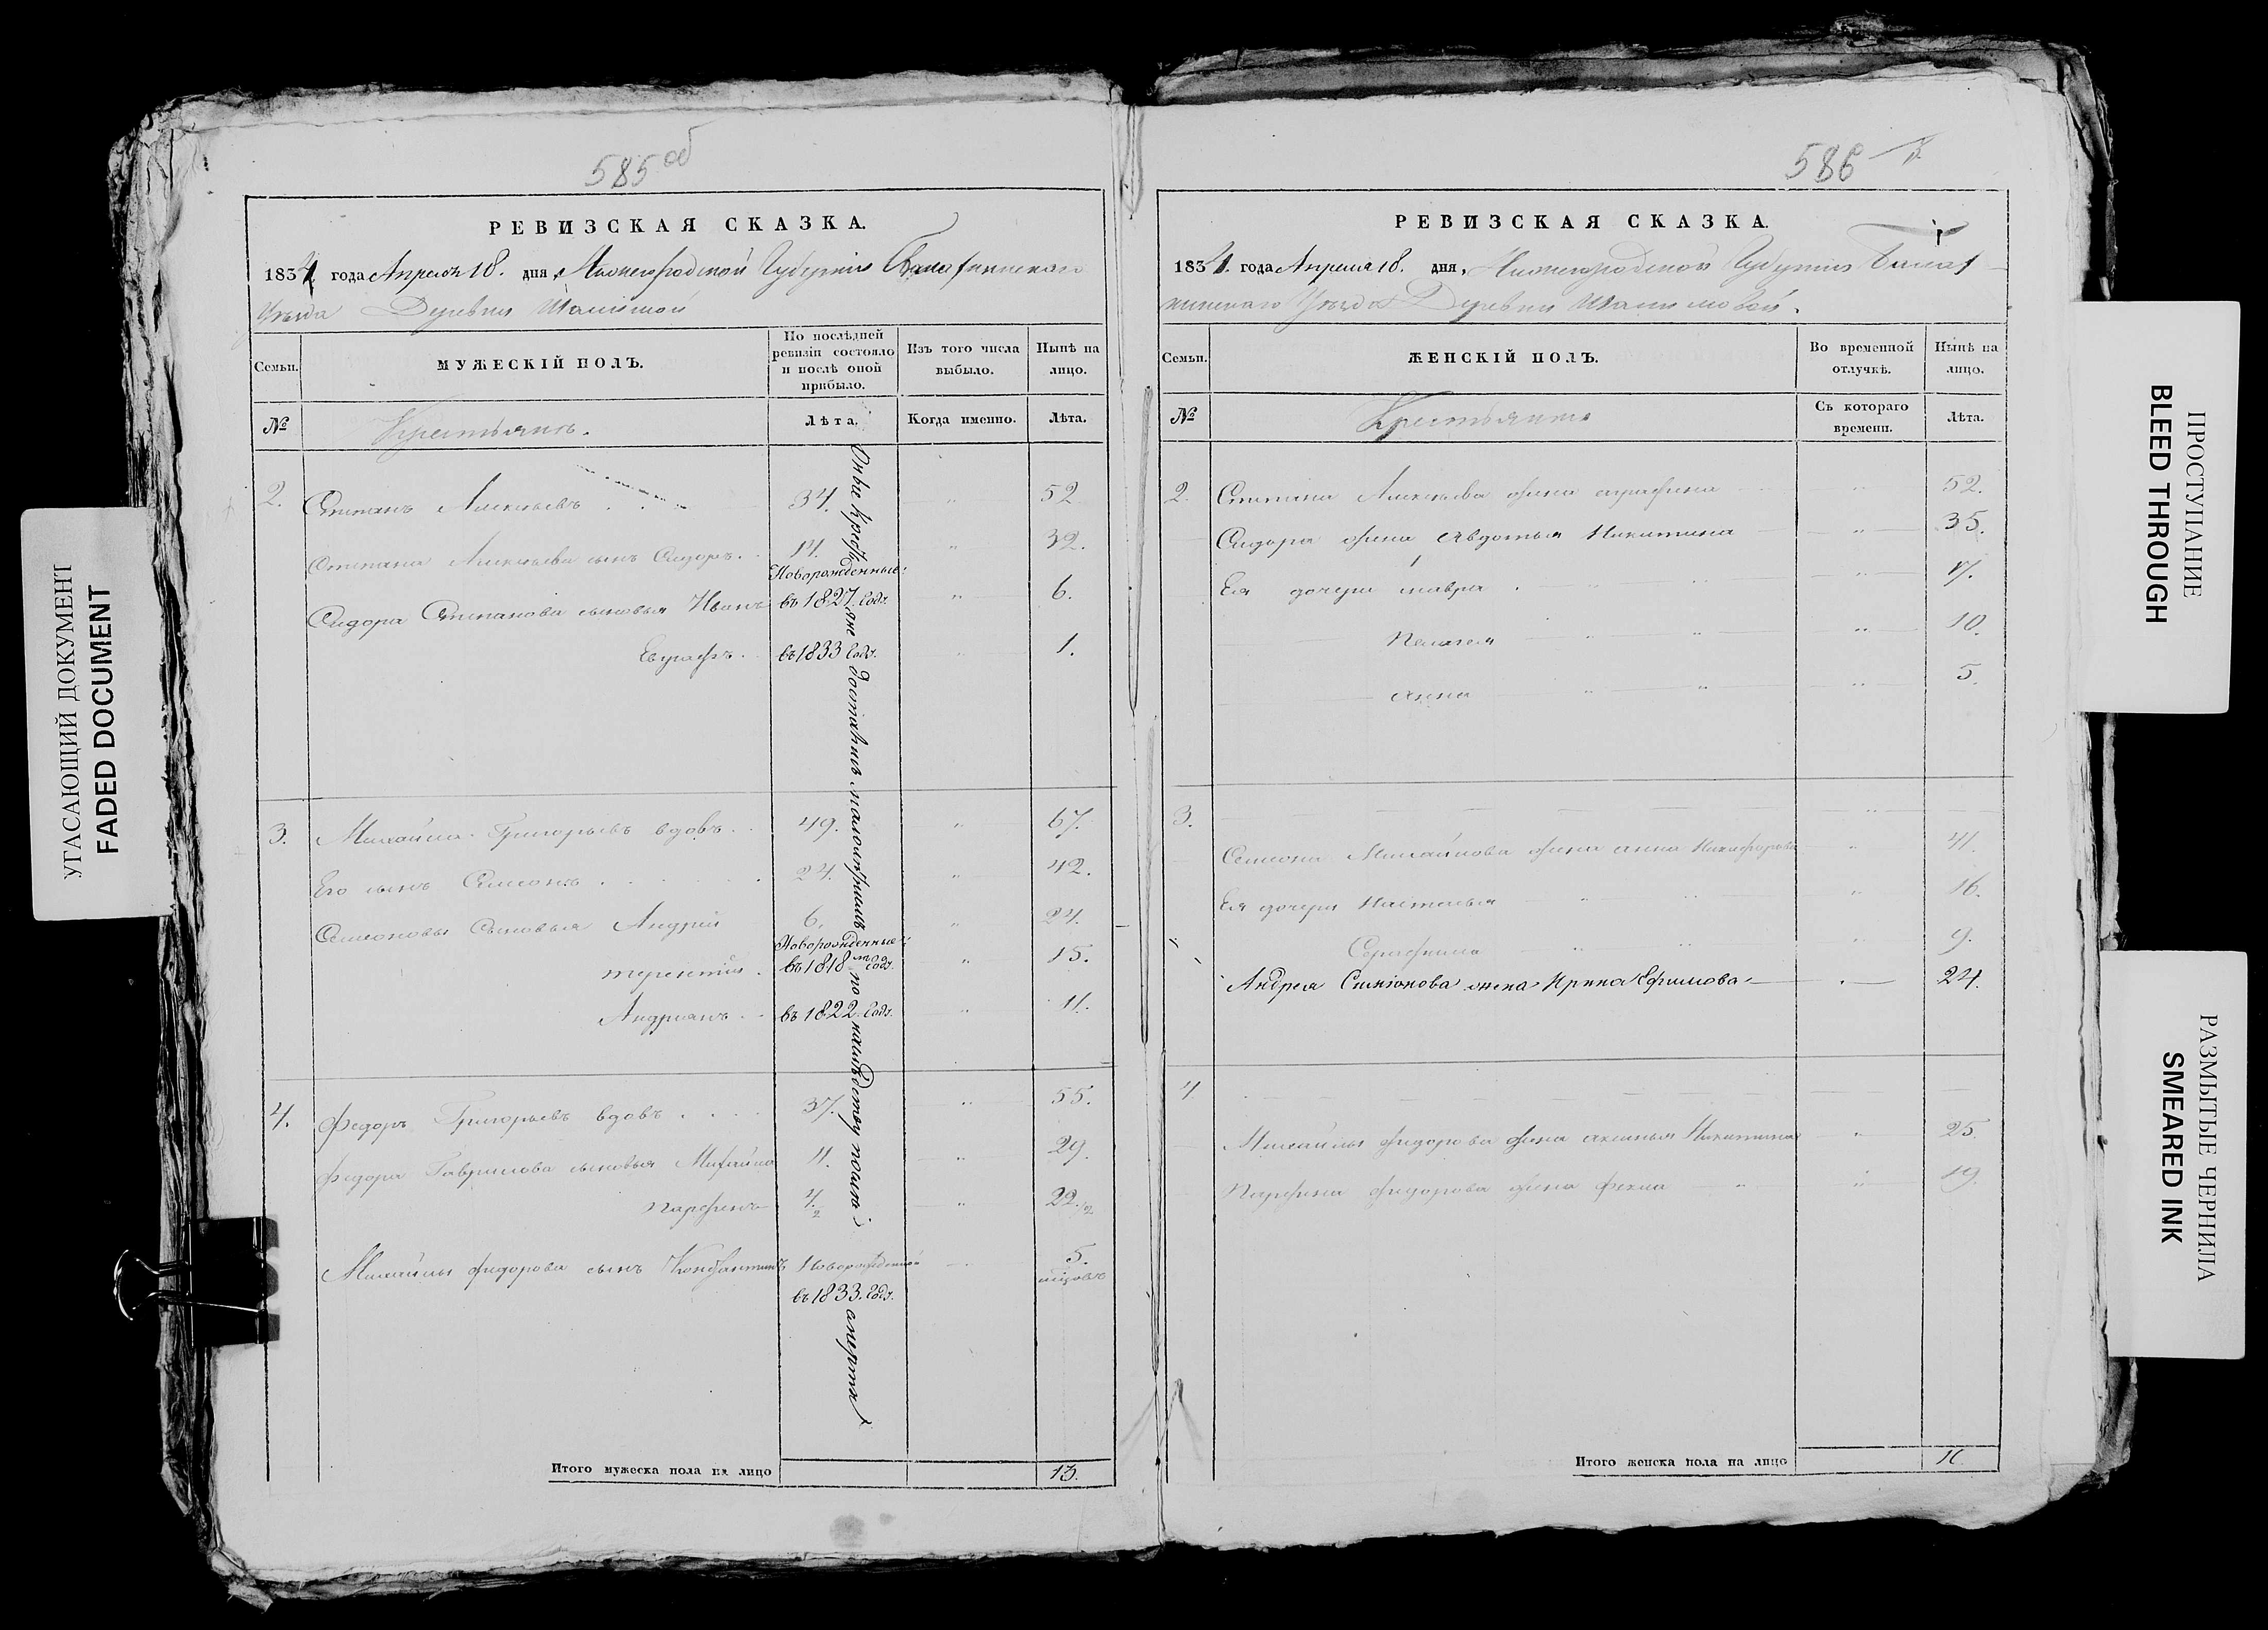 УГАСАЮЩИЙ ДОКУМЕНТ
FADED DOCUMENT
585 об
РЕВИЗСКАЯ СКАЗКА.
1834 года Апреля 18. дня, Нижегородской Губернiи Балахнинскаго
Уѣзда Деревни
Семьи.
МУЖЕСКІЙ ПОЛЪ.
По послѣдней ревизіи состояло и послѣ оной прибыло.
Изъ того числа выбыло.
Нынѣ на лицо.
№
Крестьянъ.
Лѣта.
Когда именно.
Лѣта.
2. Степанъ Алексѣевъ 34. " 52
Степана Алексѣева сынъ Сидоръ. 14. " 32.
Новорожденные:
Сидора Степанова сыновья Иванъ въ 1827. Годѣ. " 6.
Евграфъ. въ 1833 Годѣ. " 1.
3. Михайла Григорьевъ вдовъ 49. " 67.
Его сынъ Симеонъ 24. " 42.
Симеоновы Сыновья Андрей 6. " 24.
Новорожденные:
терентiй въ 1818 Годѣ. " 15.
Андреянъ въ 1822. Годѣ. " 11.
4. Федоръ Григорьевъ вдовъ 37. " 55.
Федора Гаврилова сыновья Михайла 11. " 29.
парфенъ 4. 1/2 " 22. 1/2
Михайлы Федорова сынъ Константинъ Новорожденной 5.
въ 1833. Годѣ.
по
Итого мужеска пола на лицо 13.
586
РЕВИЗСКАЯ СКАЗКА.
1834. года Апреля 18. дня, Нижегородской Губернiи Балах
нинскаго Уѣзда Деревни
Семьи.
ЖЕНСКІЙ ПОЛЪ.
Во временной отлучкѣ.
Нынѣ на лицо.
№
Крестьянъ
Съ котораго времени.
Лѣта.
2. Степана Алексѣева жена аграфена " 52.
Сидора жена Авдотья Никитина " 35.
Ея дочери мавра "
Пелагея " " " 10.
Анна " " " 5.
3. "
Симеона Михайлова жена анна Никифорова " 41.
Ея дочери Наталья " " " 16.
Серафима " " " 9.
Андрея Симіонова жена Ирина Ефимова 24.
4
Михайлы Федорова жена аксинья Никитина " 25.
Парфена Федорова жена Фекла " " 19.
Итого женска пола на лицо
ПРОСТУПАНИЕ
BLEED THROUGH
РАЗМЫТЫЕ ЧЕРНИЛА
SMEARED INK